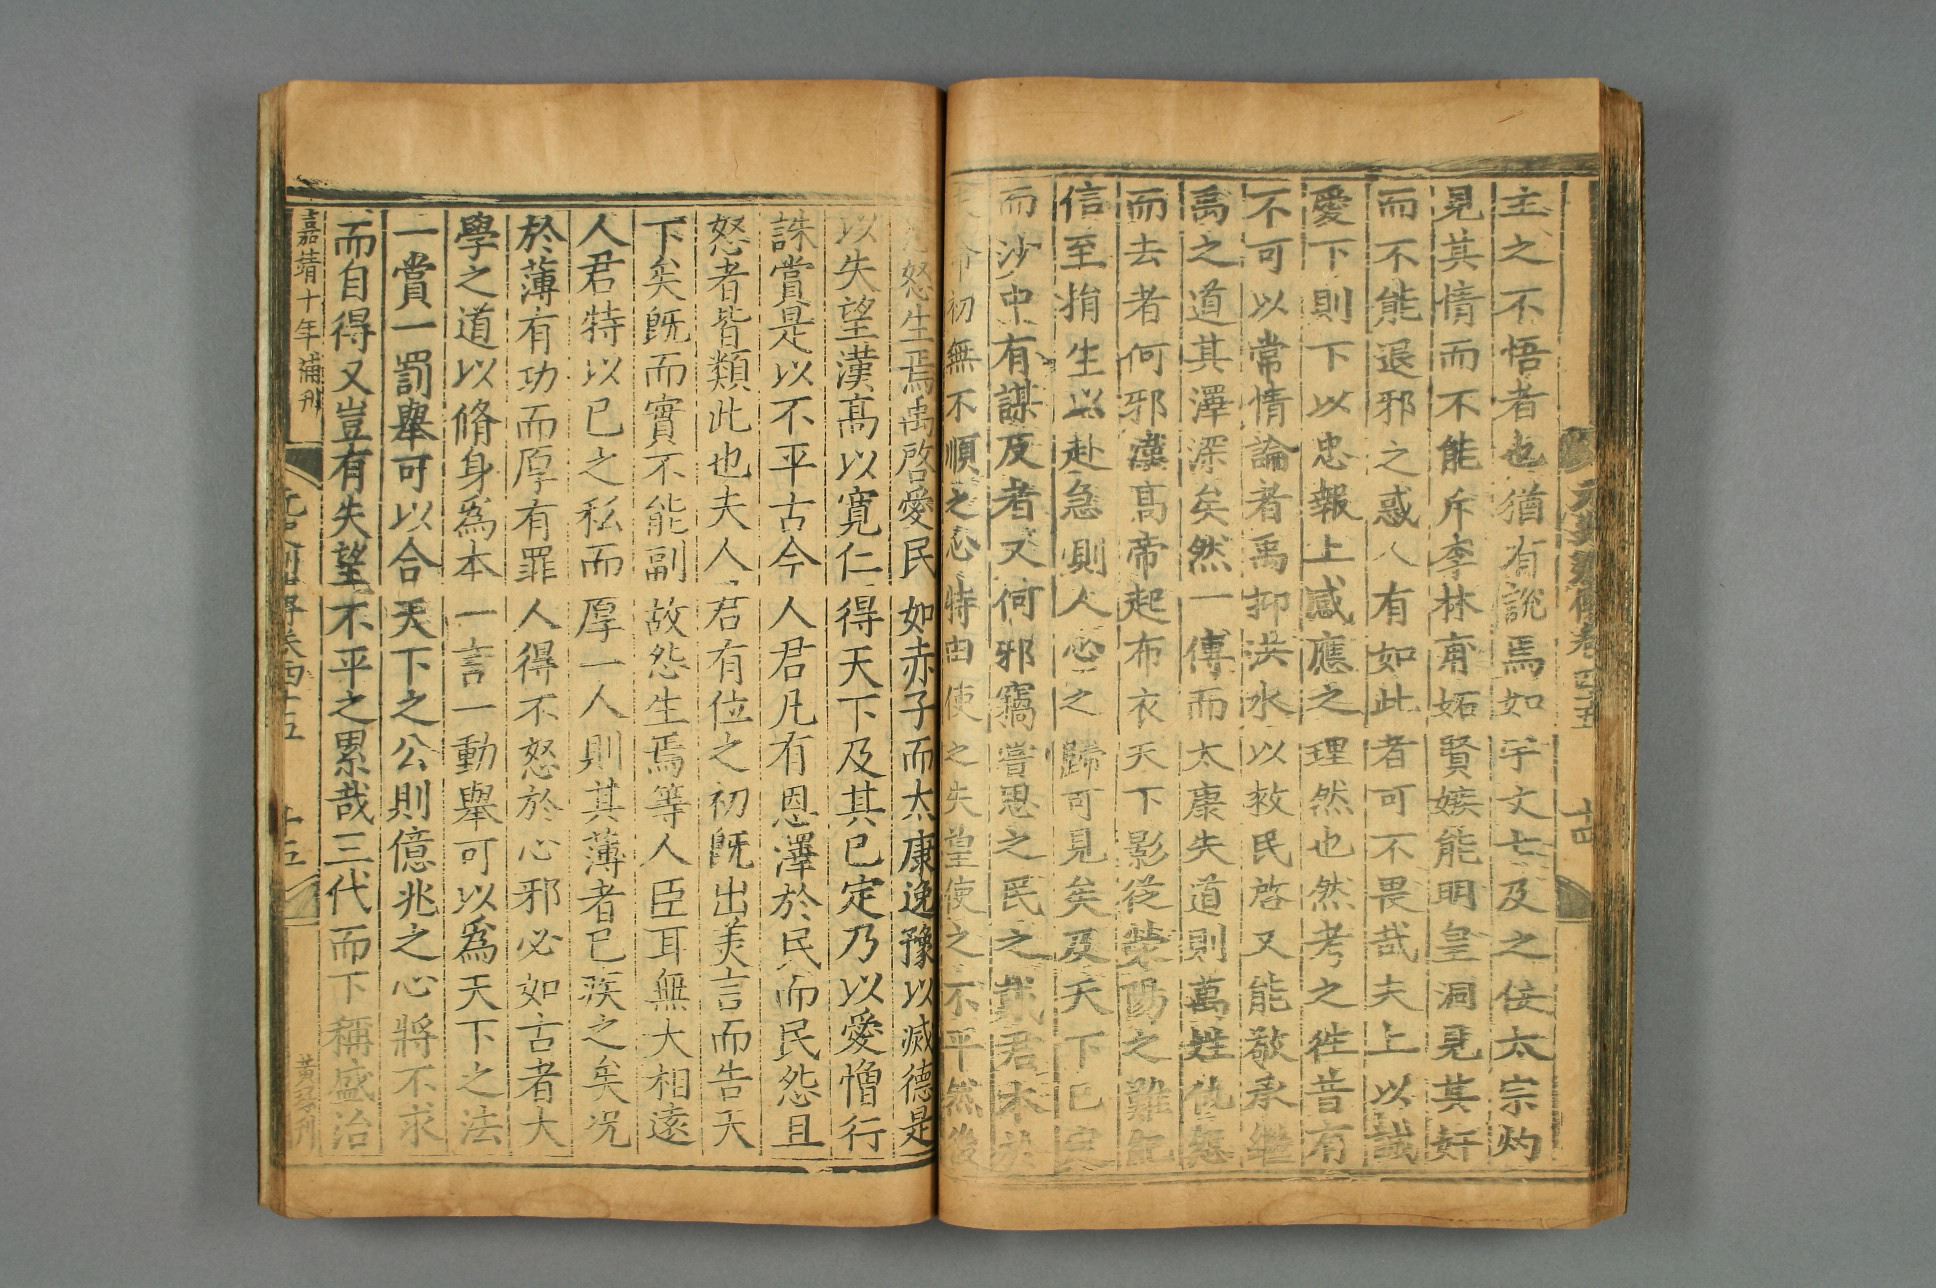 主之不悟者也猶有說焉如宇文士及之佞太宗灼
見其情而不能斥李林甫妬賢嫉能明皇洞見其奸
而不能退邪之惑人有如此者可不畏哉夫上以誠
愛下則下以忠報上感應之理然也然考之徃昔有
不可以常情論者禹抑洪水以救民啓又能敬承繼
禹之道其澤深矣然一傳而太康失道則萬姓仇怨
而去者何邪漢髙帝起布衣天下影從滎陽之難紀
信至捐生以赴急則人心之歸可見矣及天下已定
而沙中有謀反者又何邪竊嘗思之民之戴君本於
天命初無不順之心特由使之失望使之不平然後
怨怒生焉禹啓愛民如赤子而太康逸豫以滅德是
以失望漢髙以寛仁得天下及其已定乃以愛憎行
誅賞是以不平古今人君凡有恩澤於民而民怨且
怒者皆類此也夫人君有位之初既出美言而告天
下矣既而實不能副故怨生焉等人臣耳無大相遠
人君特以己之私而厚一人則其薄者已疾之矣况
於薄有功而厚有罪人得不怒於心邪必如古者大
學之道以脩身爲本一言一動舉可以爲天下之法
一賞一罰舉可以合天下之公則億兆之心將不求
而自得又豈有失望不平之累哉三代而下稱盛治
元史列傳卷四十五
十四
嘉靖十年補刊
元史列傳卷四十五
十五